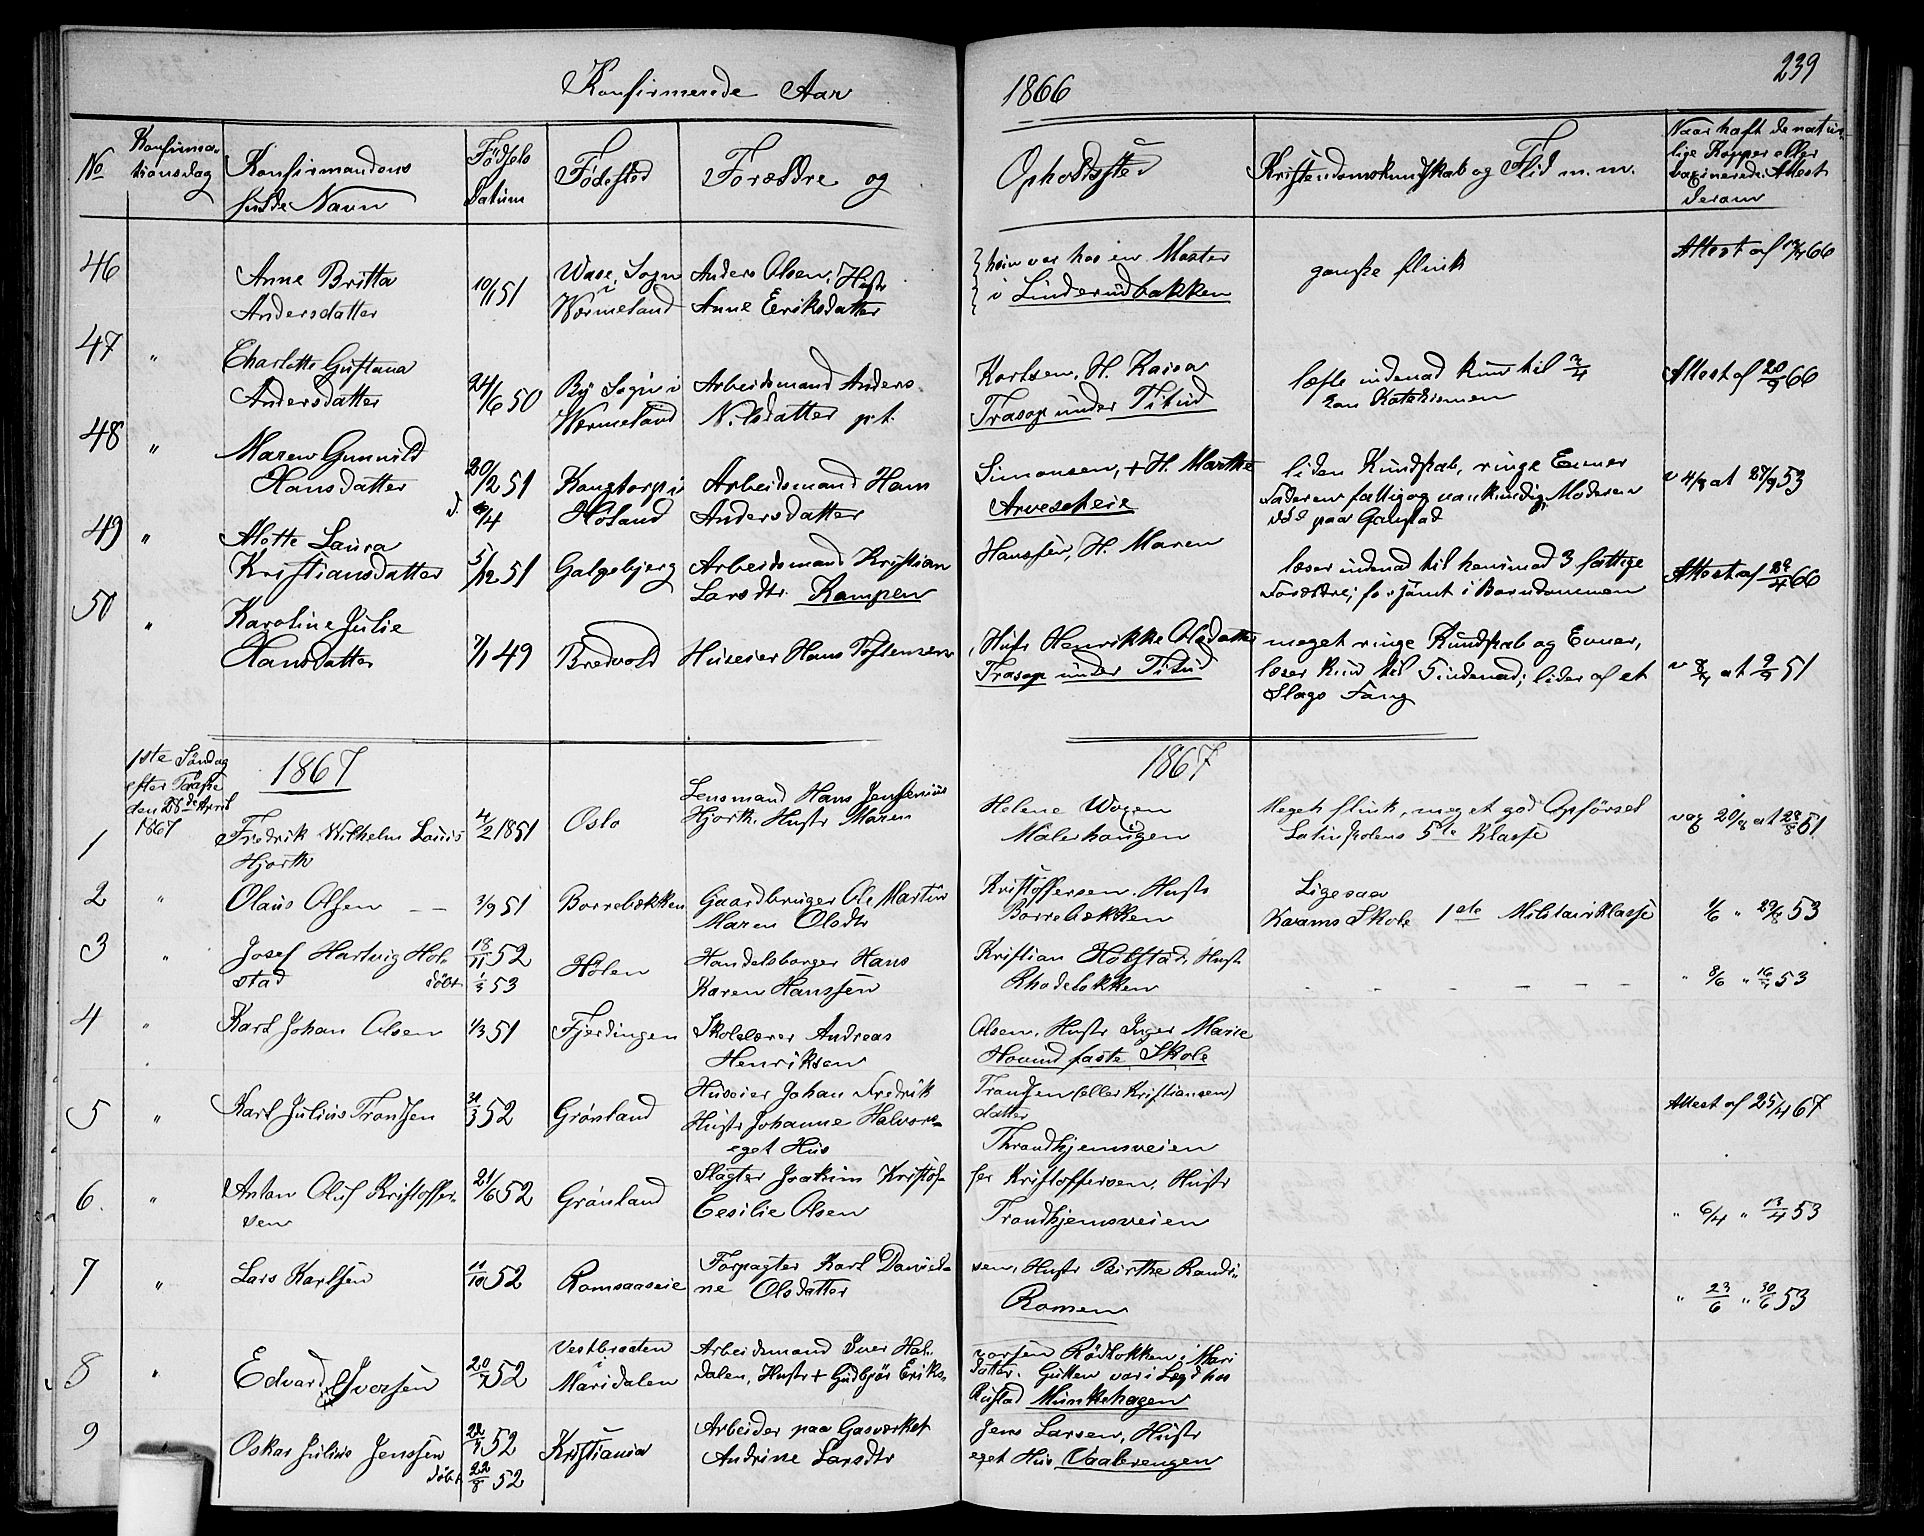 239
Konfirmerede Aar 1866
No
Konfirma-
tionsdag
Konfirmandens
fulde Navn
Fødsels
Datum
Fødested
Forældre og
Opholdssted
Kristendomskundskab og Flid m. m.
Naar haft de natur-
lige Kopper eller
vaccinerede. Attest
derom
46 Anne Britta
Andersdatter
10/1 51
Wase Sogn
i
Wermeland
Anders Olsen, Hustr
Anne Eriksdatter
hun var hos en Moster
i Linderudbakken
ganske flink
Attest af 66
47 " Charlotte Gustava
Andersdatter
24/6 50
By Sogn i
Wermeland
Arbeidsmand Anders
Nilsdatter p.t.
Karlsen, H. Kaisa
Trasop under Titud
læste indenad kun til 3/4
Katekismen
Attest af 20/9 66
48 " Maren Gunnild
Hansdatter
20/2 51
d. /4
Kongtorp i
Høland
Arbeidsmand Hans
Andersdatter
Simonsen, + H. Marthe
Arvescheie
liden Kundskab, ringe Evner
Faderen fattig og vankundig, Moderen
død paa Gaustad
v 4/8 at 27/9 53
49 " Alette Laura
Kristiansdatter
5/12 51
Galgebjerg
Arbeidsmand Kristian
Larsdtr. Kampen
Hanssen, H. Maren
læser indenad til henimod 3 fattige
Forældre; forsømt i Barndommen
Attest af 66
50 " Karoline Julie
Hansdatter
7/1 49
Bredvold
Huseier Hans Tostensen
, Hustr Henrikke Olsdatter
Trasop under Titud
meget ringe Kundskab og Evner,
læser kun til 5 indenad; lider af et
Slags Fang
v at 9/7 51
1867 1867
1ste Søndag
efter Paaske
den 28de April
1867
1 Fredrik Wilhelm Louis
Hjorth
4/2 1851
Oslo
Lensmand Hans Jensenius
Hjorth, Hustr Maren
Helene Wogen
Malerhaugen
Meget flink, meget god Opførsel
Latinskolens 5te Klasse
vac 20/8 at 28/8 51
2 " Olaus Olsen —
3/9 51
Borrebækken
Gaardbruger Ole Martin
Maren Olsdtr
Kristoffersen. Hustr
Borrebækken
Ligesaa
Kvams Skole 1ste Militairklasse
1/6 " 29/8 53
3 " Josef Hartvig Hol-
stad døbt
18/11 52
53
Holen
Handelsborger Hans
Karen Hanssen
Kristian Holstad, Hustr
Rhodeløkken
" 8/6 " 53
4 " Karl Johan Olsen
1/3 51
Fjerdingen
Skolelærer Andreas
Henriksen
Olsen, Hustr Inger Marie
Hovind faste Skole
5 " Karl Julius Trondsen
31/3 52
Grønland
Huseier Johan Fredrik
Hustr Johanne Halvors-
eget Hus
Trondsen (eller Kristiansen)
datter
Throndhjemsveien
Attest af 25/4 67
6. " Anton Oluf Kristoffer-
sen
21/6 52
Grønland
Slagter Joakim Kristof-
Cesilie Olsen
fer Kristoffersen, Hustr
Trondhjemsveien
" 6/4 " 13/4 53
7 " Lars Karlsen
11/10 52
Romsaaseie
Forpagter Karl David-
ne Olsdatter
sen, Hustr Birthe Randi-
Romen
" 23/6 " 30/6 53
8 " Edvard Iversen
20/7 52
Vestbraaten
i
Maridalen
Arbeidsmand Iver Hal-
dalen, Hustr + Gudbjør Eriks-
vorsen Rødløkken i Mari
datter. Gutten var i Legd hos
Rustad Munkehagen
9 Oskar Julius Jenssen
døbt
52
22/8 52
Kristiania
Arbeider paa Gasverket
Andrine Larsdtr
Jens Larsen, Hustr
eget Hus Vaalerengen